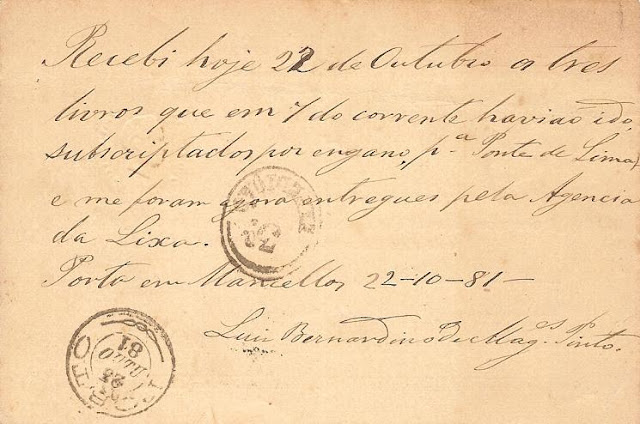 Recebi hoje 22 de Outubro os tres
livros que em 7 do corrente haviao ido,
subscriptados por engano, p.ª Ponte de Lima,
e me foram agora entregues pela Agencia
da Lixa.
Porta em Marcellos 22-10-81-
Luis Bernardino de Mag.es Pinto.
PORTO
23
OUTUBRO
81